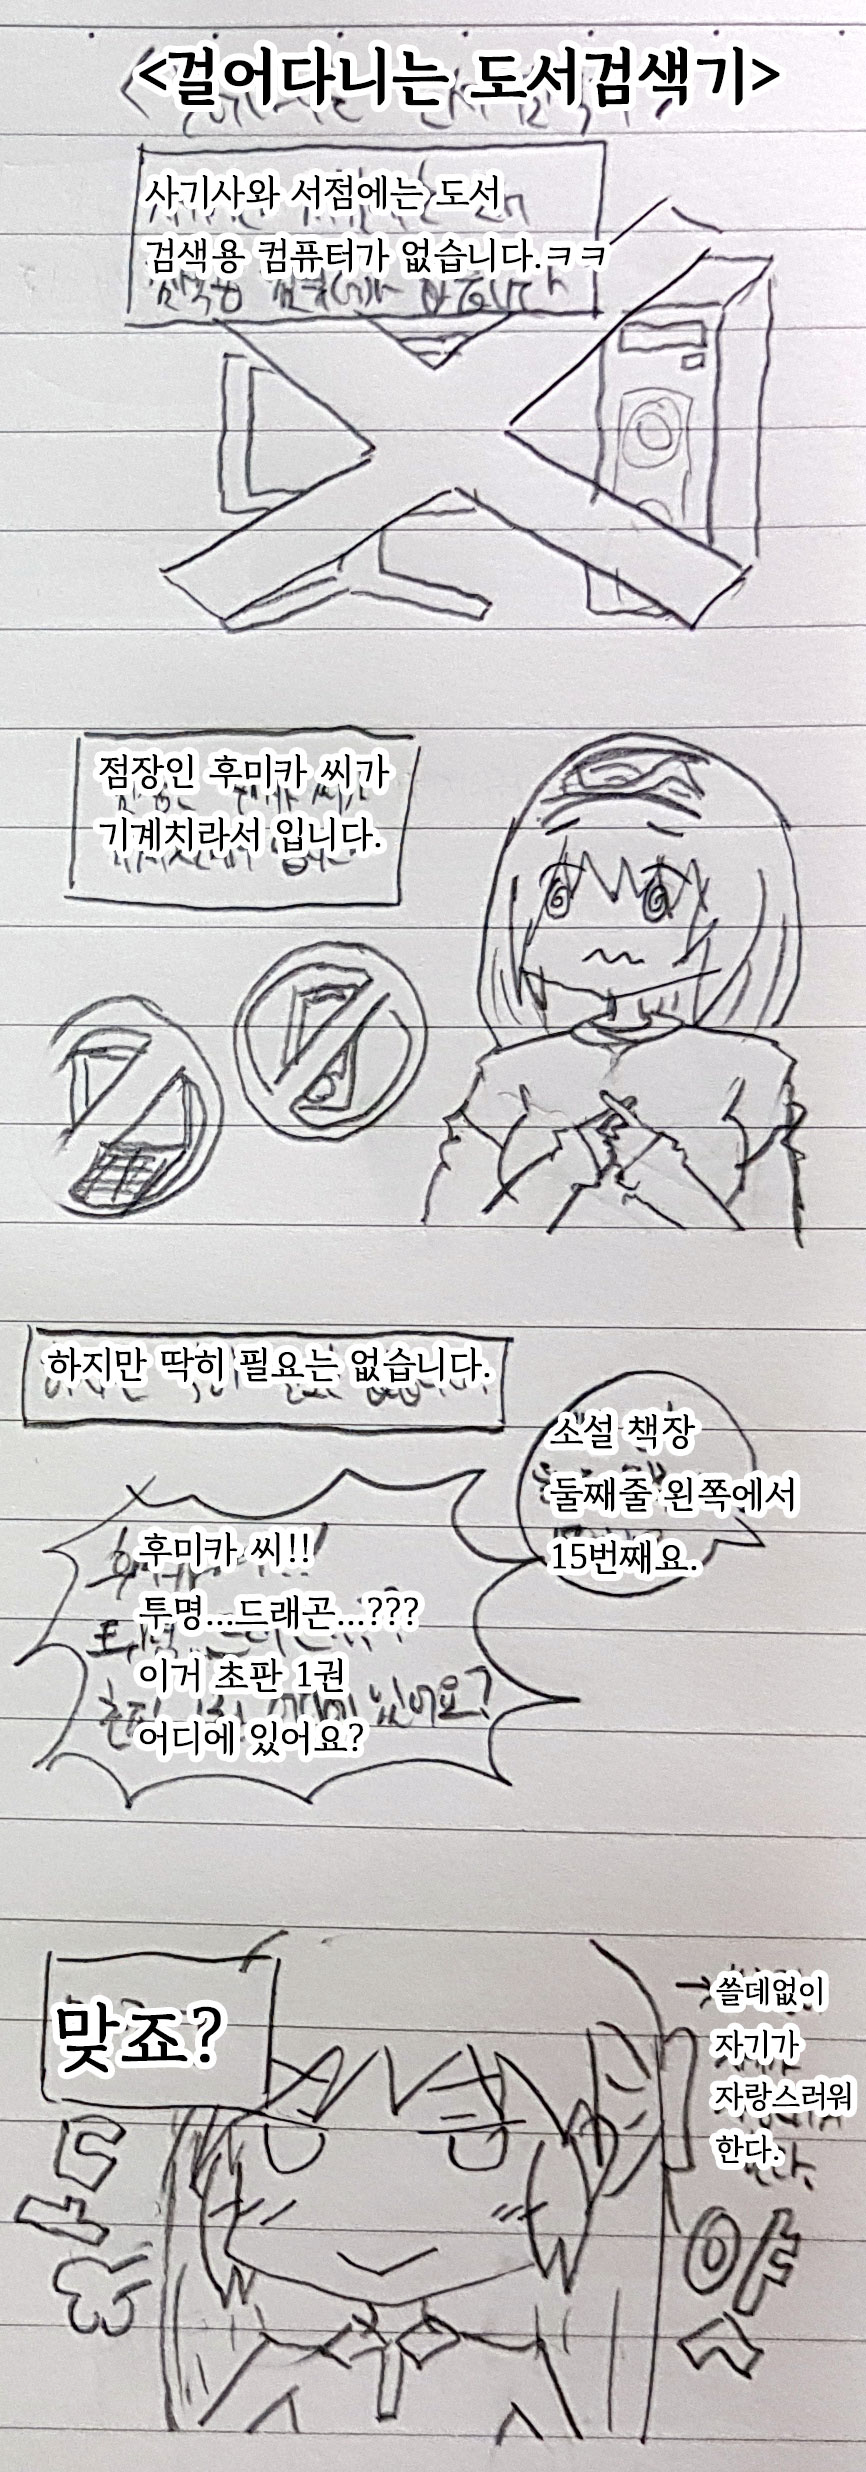 <걸어다니는 도서검색기>
사기사와 서점에는 도서
검색용 컴퓨터가 없습니다.ㅋㅋ
점장인 후미카 씨가
기계치라서 입니다.
하지만 딱히 필요는 없습니다.
소설 책장
둘째줄 왼쪽에서
15번째요.
후미카 씨!!
투명...드래곤...???
이거 초판 1권
어디에 있어요?
맞죠?
→쓸데없이
자기가
자랑스러워
한다.